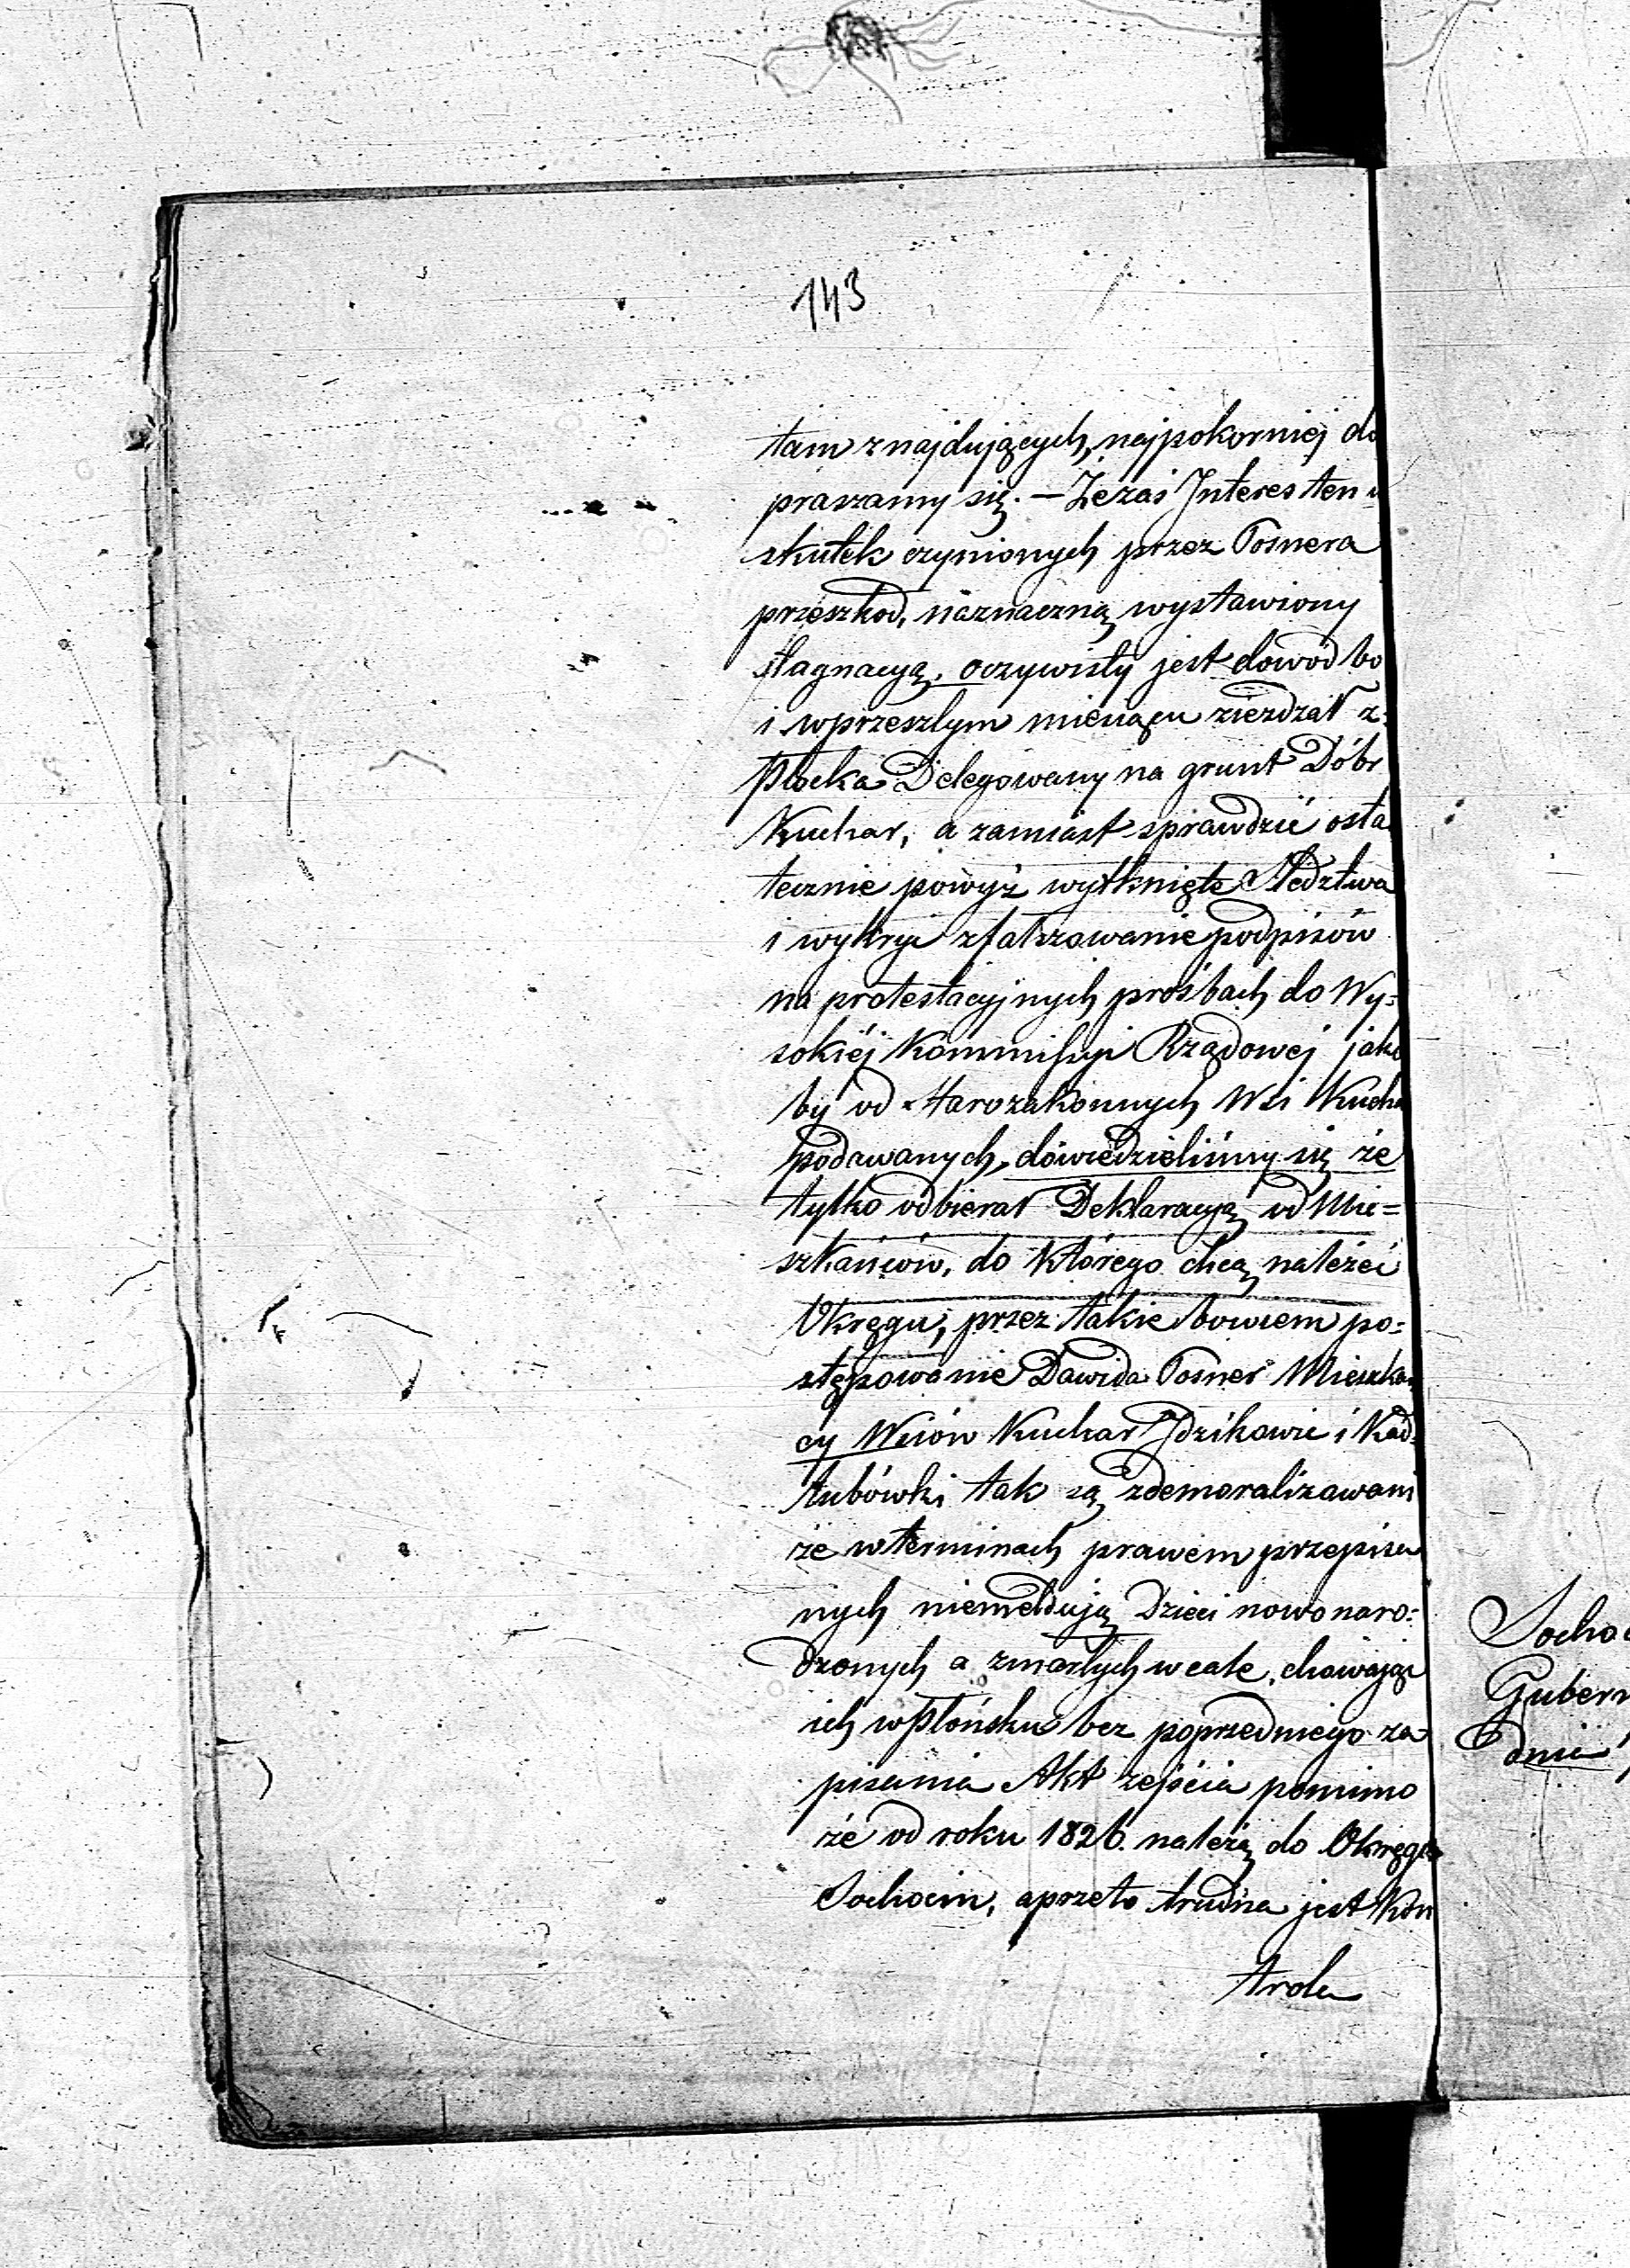 143
tam znajdujących, najpokorniej do
praszamy się. — Żezaś Interes ten w
skutek czynionych przez Posnera
przeszkod, naznaczną wystawiony
stagnacyą, oczywisty jest dowód bo
i wprzeszłym miesiącu zieżdzał z
Płocka Delegowany na grunt Dóbr
Kuchar, a zamiast sprawdzić osta
tecznie powyż wytknięte Śledztwa
i wykryć sfałszowanie podpisów
na protestacyjnych prośbach do Wy=
sokiéj Kommissyi Rządowéj jako
by od Starozakonnych Wsi Kucha
podawanych, dowiedzieliśmy się że
tylko odbierał Deklaracyą od Mie=
szkańców, do którego chcą należéć
Okręgu, przez takie bowiem po=
stępowanie Dawida Posner Mieszkań
cy Wsiów Kuchar Jdzikowic i Kad
łubówki tak są zdemoralizowani
że wterminach prawem przepisa
nych niemeldują Dzieci nowonaro=
dzonych a zmarłych wcale, chowając
ich wPłońsku bez poprzedniego za=
pisania Akt zejścia pomimo
że od roku 1826. należą do Okręgu
Sochocin, aprzeto trudna jest Kon
trola
Sochoc
Gubern
dnia